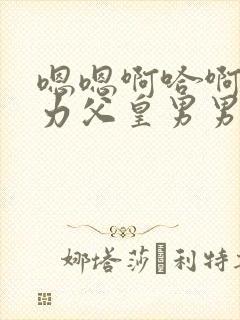 嗯嗯啊哈啊
力父皇男男
娜塔莎 利特